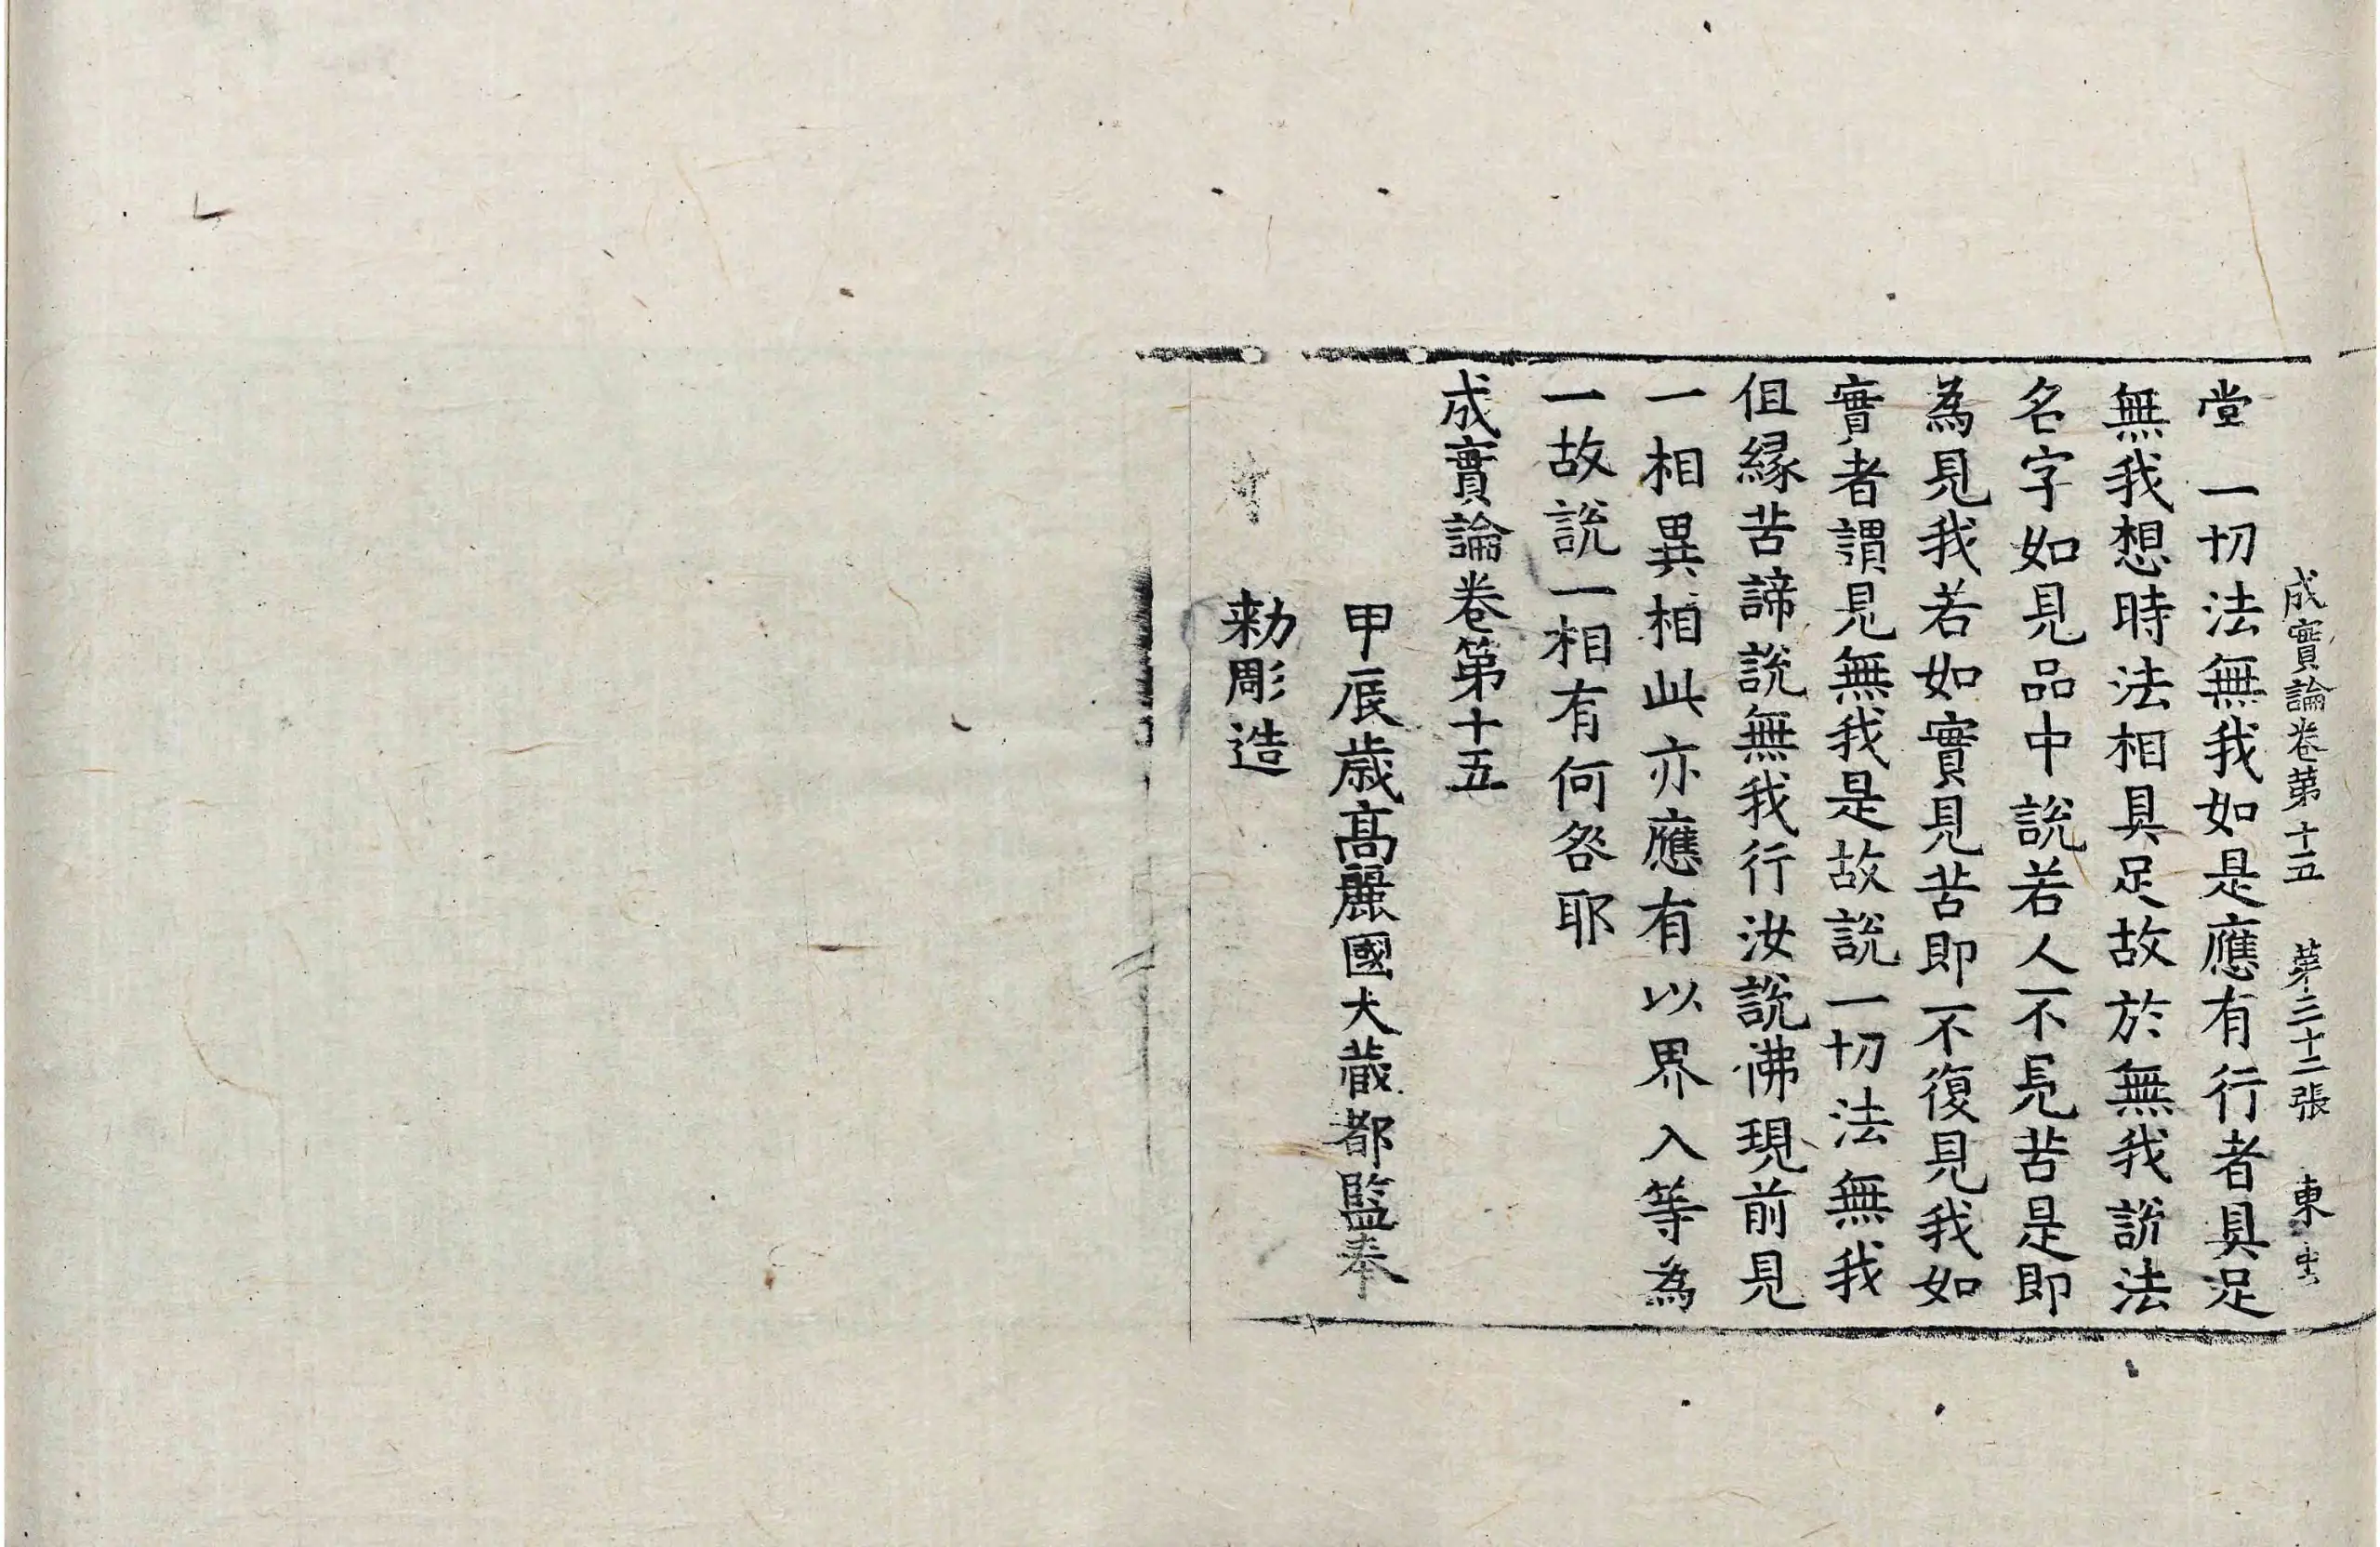 成實論卷第十五 第三十二張 東
堂一切法無我如是應有行者具足
無我想時法相具足故於無我說法
名字如見品中說若人不見苦是即
為見我若如實見苦即不復見我如
實者謂見無我是故說一切法無我
但緣苦諦說無我行汝說佛現前見
一相異相此亦應有以界入等為
一故說一相有何咎耶
成實論卷第十五
甲辰歲高麗國大藏都監奉
勑彫造